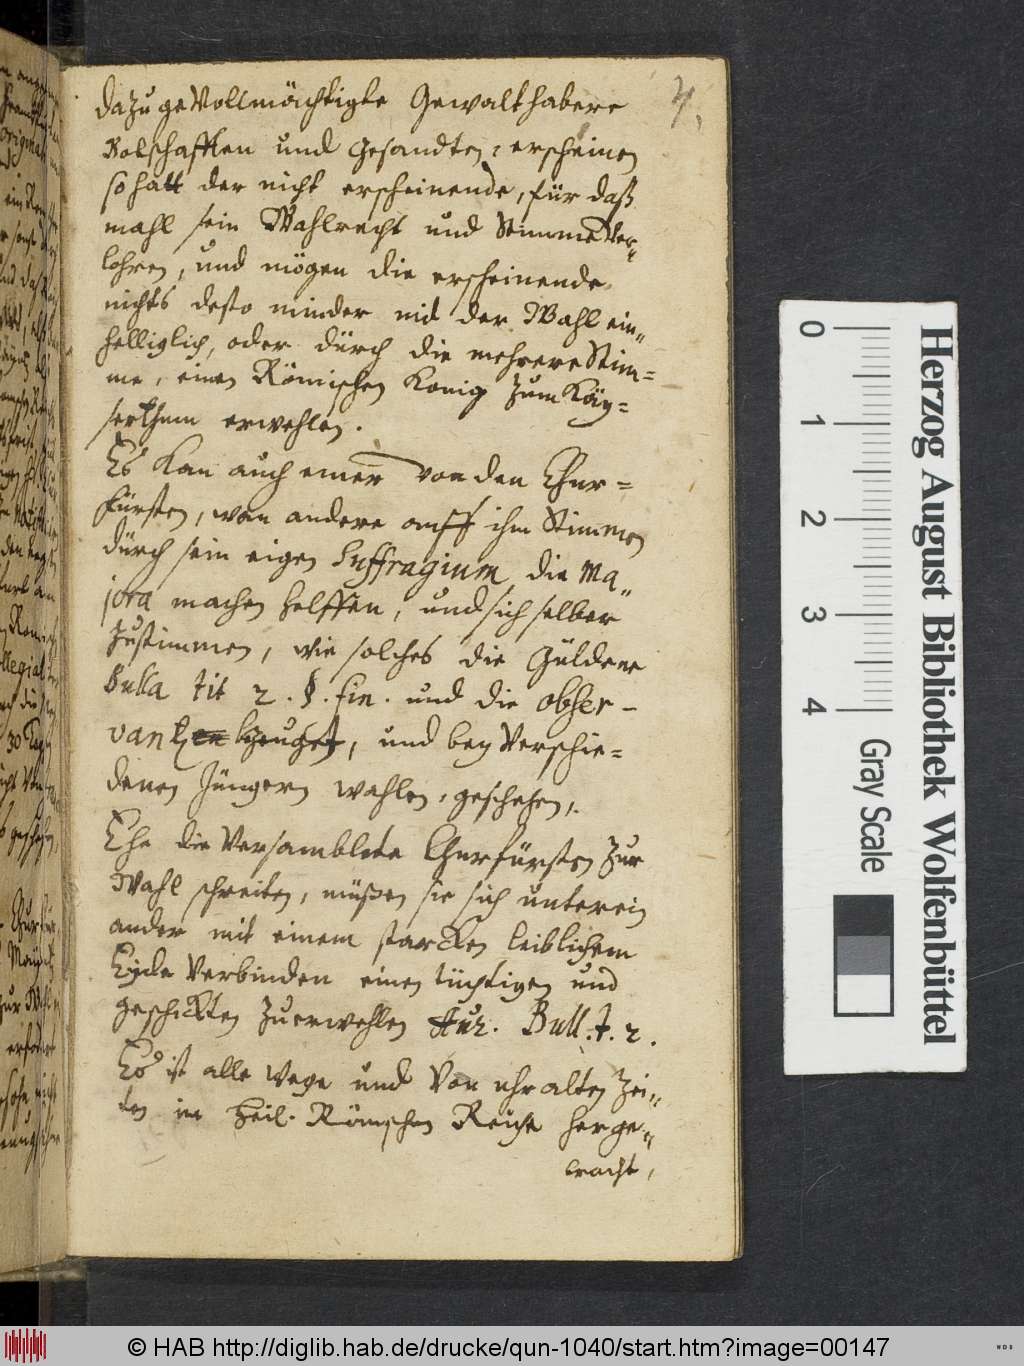 7.
dazu gevollmächtigte Gewalthabere
Botschafften und gesandten, erscheinen
so hatt der nicht erscheinende, für daß
mahl sein Wahlrecht und Stimme ver„
lohren, und mögen die erscheinende
nichts desto minder mit der Wahl ein„
helliglich, oder dürch die mehrere Stim=
me, einen Römischen Konig zum Käy=
serthum erwehlen.
Es kan auch einer von den Chur=
fürsten, wan andere auff ihm Stimmen
dürch sein eigen Suffragium die Ma„
jora machen helffen, und sich selber
zustimmen, wie solches die Güldene
Bulla tit 2. §. fin. und die obser-
vantz bezeuget, und bey verschie=
denen Jüngern wahlen, geschehen,.
Ehe die versamblete Churfürsten zur
Wahl schreiten, müßen sie sich unterein
ander mit einem starcken leiblichem
Eyde verbinden einen tüchtigen und
geschickten zu erwehlen Aur. Bull. t. 2.
Es ist alle wege und von uhralten Zei„
ten im Heil. Römischen Reiche herge„
bracht,
Herzog August Bibliothek Wolfenbüttel
0 1 2 3 4
Gray Scale
© HAB http://diglib.hab.de/drucke/qun-1040/start.htm?image=00147